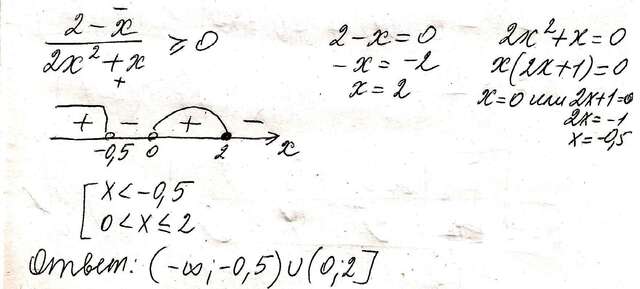 (2 - x) / (2x² + x) ≥ 0
- +
2 - x = 0
- x = -2
x = 2
2x² + x = 0
x(2x+1) = 0
x = 0 или 2x+1=0
2x = -1
x = -0,5
+ - + -
-0,5 0 2 x
[ x < -0,5
0 < x ≤ 2
Ответ: (-∞; -0,5) ∪ (0; 2]